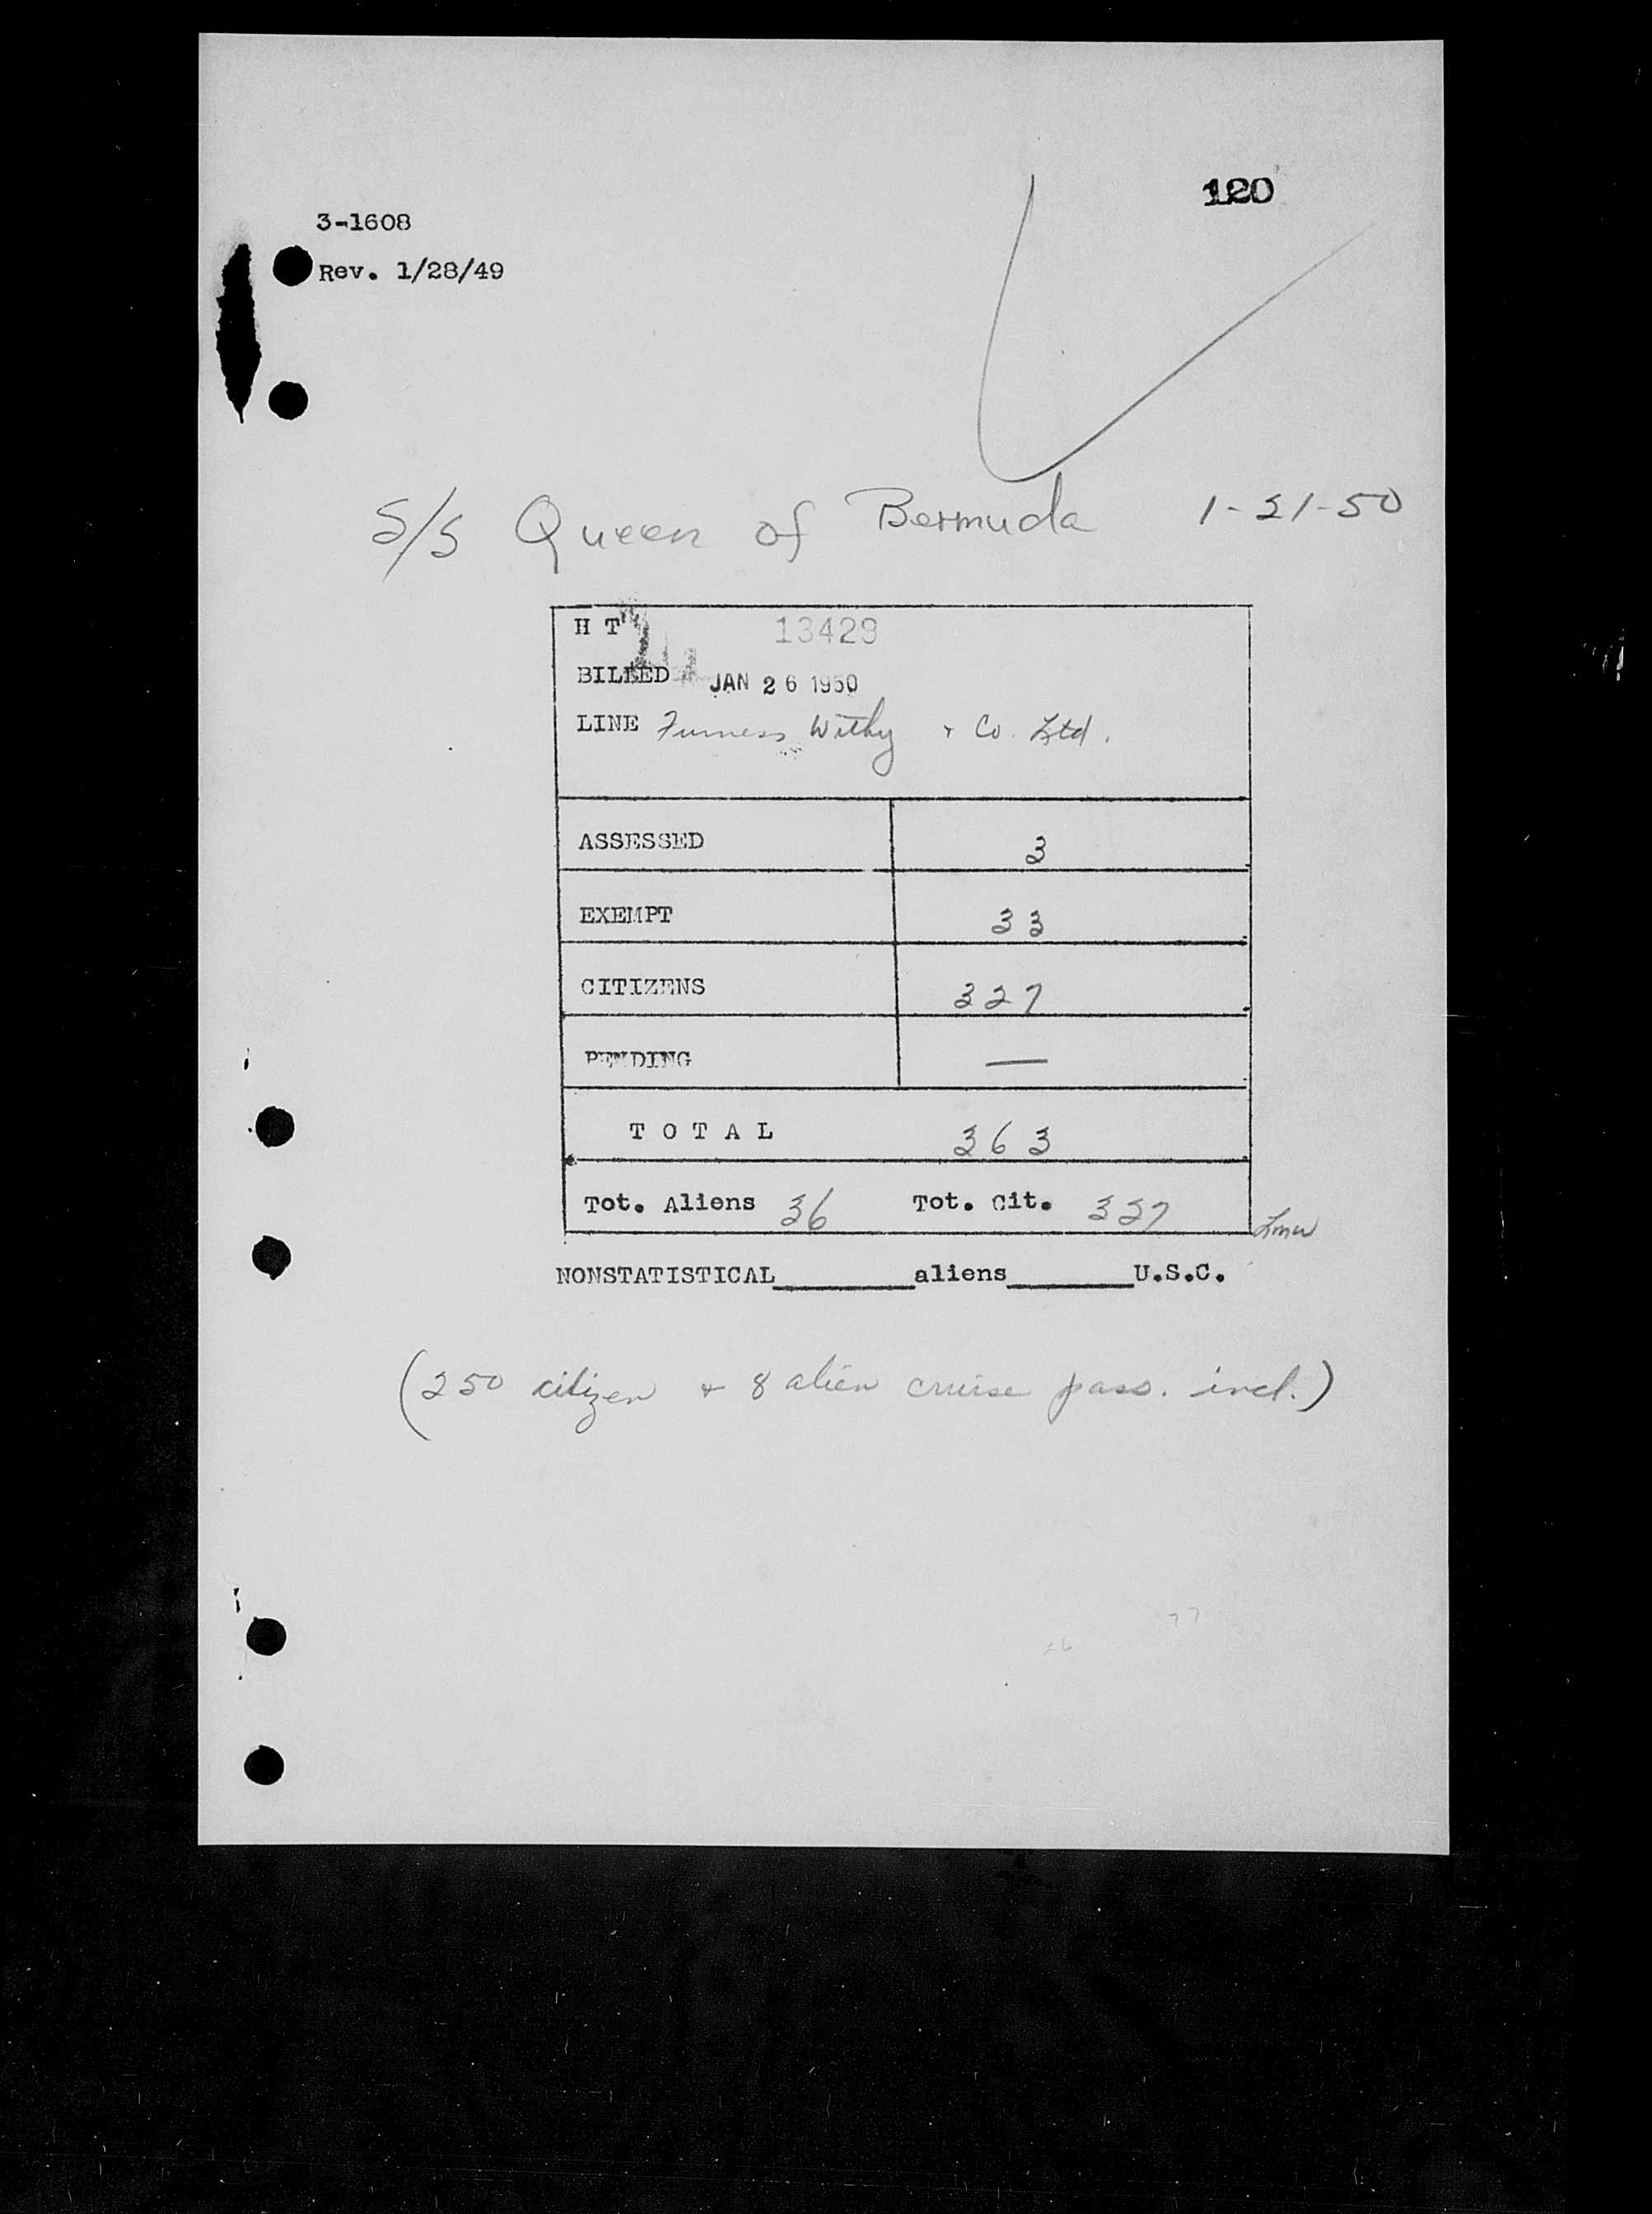 120
3-1608
Rev. 1/28/49
S/S Queen of Bermuda 1-21-50
H T 13429
BILLED JAN 26 1950
LINE Furness Withy & Co. Ltd.
ASSESSED 3
EXEMPT 33
CITIZENS 327
PENDING —
T O T A L 363
Tot. Aliens 36 Tot. Cit. 327
NONSTATISTICAL________aliens________U.S.C.
(250 citizen & 8 alien cruise pass. incl.)